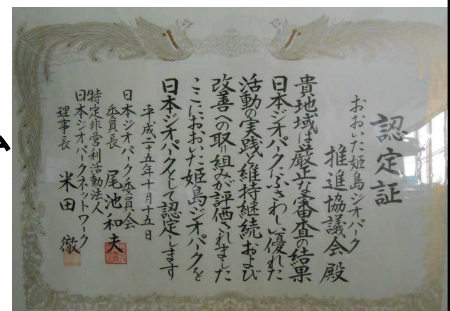 認定証
おおいた姫島ジオパーク
推進協議会殿
貴地域は厳正な審査の結果
日本ジオパークにふさわしい優れた
活動の実践と維持継続および
改善への取り組みが評価されました
ここにおおいた姫島ジオパークを
日本ジオパークとして認定します
平成二十五年十月十五日
日本ジオパーク委員会
委員長 尾池和夫
特定非営利活動法人
日本ジオパークネットワーク
理事長 米田徹